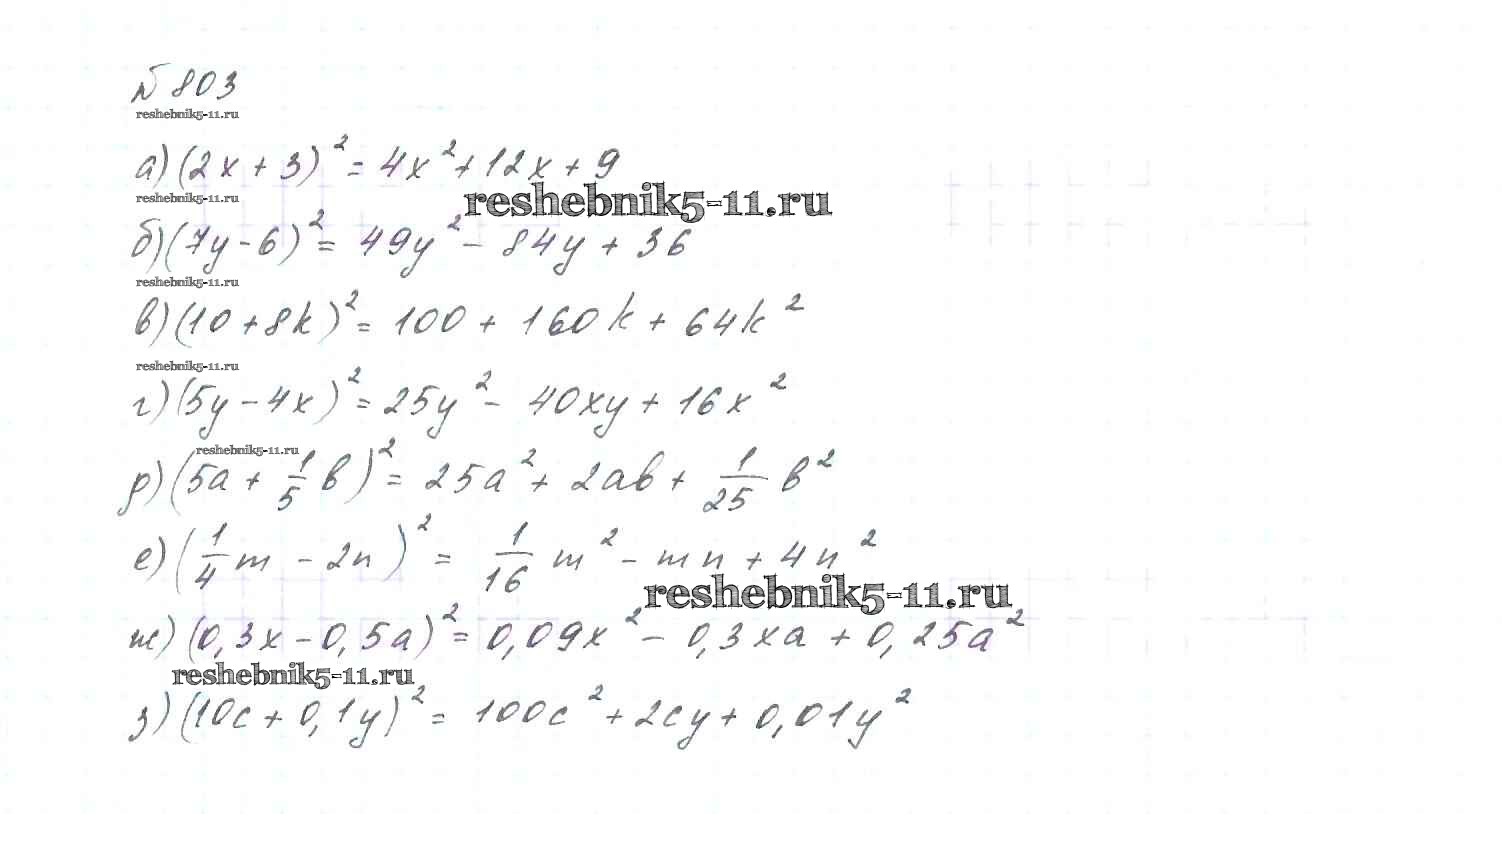 № 803
reshebnik5-11.ru
а) (2x + 3)² = 4x² + 12x + 9
reshebnik5-11.ru
reshebnik5-11.ru
б) (7y - 6)² = 49y² - 84y + 36
reshebnik5-11.ru
в) (10 + 8k)² = 100 + 160k + 64k²
reshebnik5-11.ru
г) (5y - 4x)² = 25y² - 40xy + 16x²
reshebnik5-11.ru
д) (5a + 1/5 b)² = 25a² + 2ab + 1/25 b²
е) (1/4 m - 2n)² = 1/16 m² - mn + 4n²
reshebnik5-11.ru
ж) (0,3x - 0,5a)² = 0,09x² - 0,3xa + 0,25a²
reshebnik5-11.ru
з) (10c + 0,1y)² = 100c² + 2cy + 0,01y²